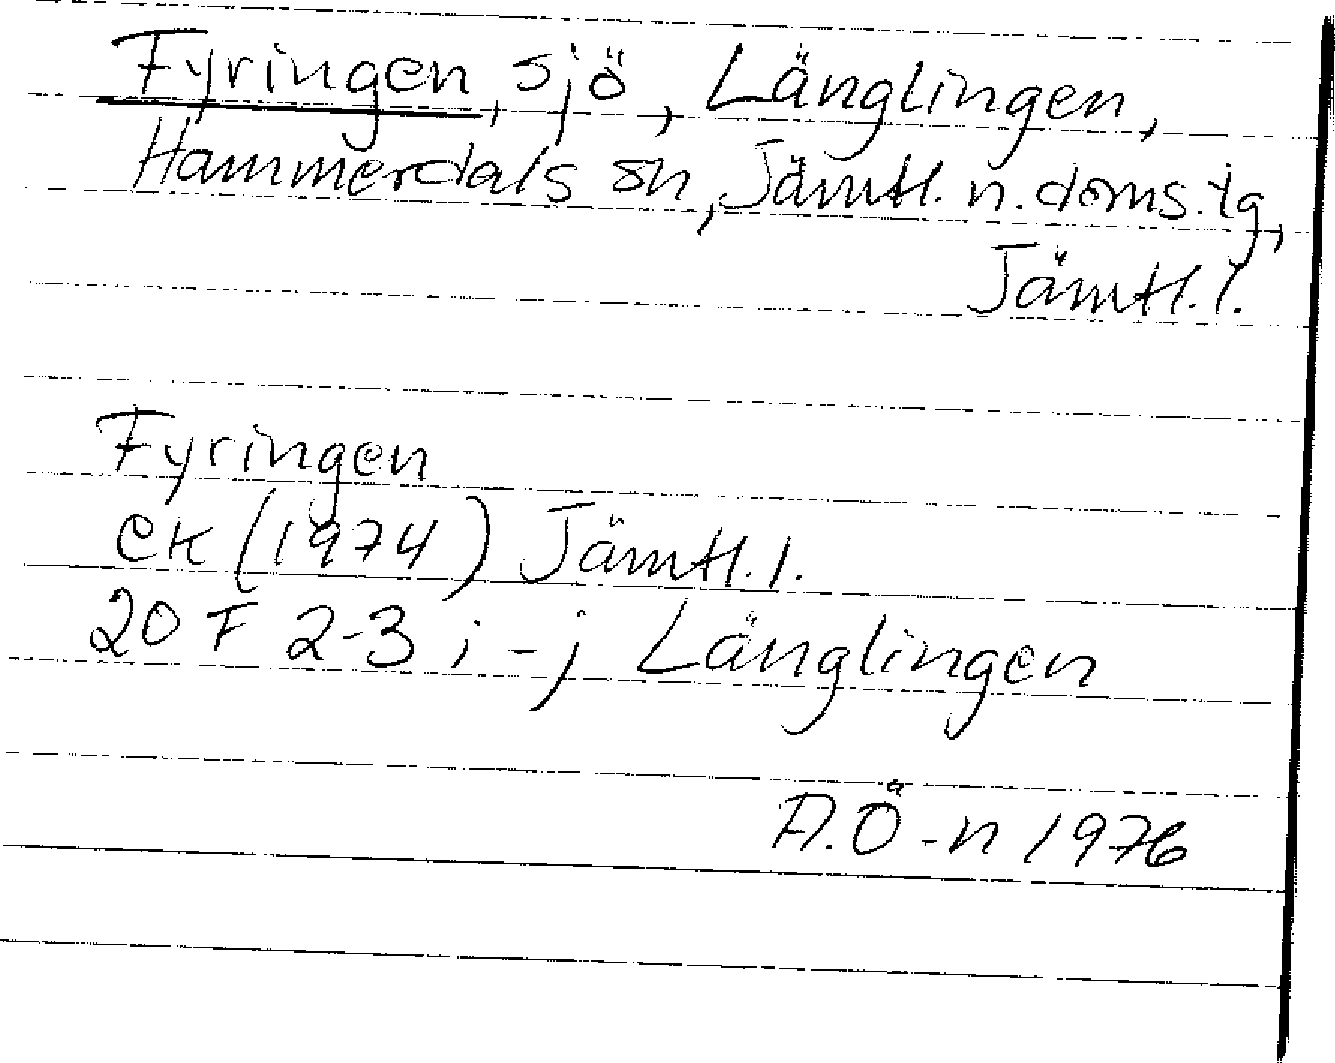 Fyringen, sjö, Länglingen,
Hammerdals sn, Jämtl. n. doms.tg,
Jämtl. l.
Fyringen
ek (1974) Jämtl. l.
20 F 2-3 i-j Länglingen
A.Ö-n 1976